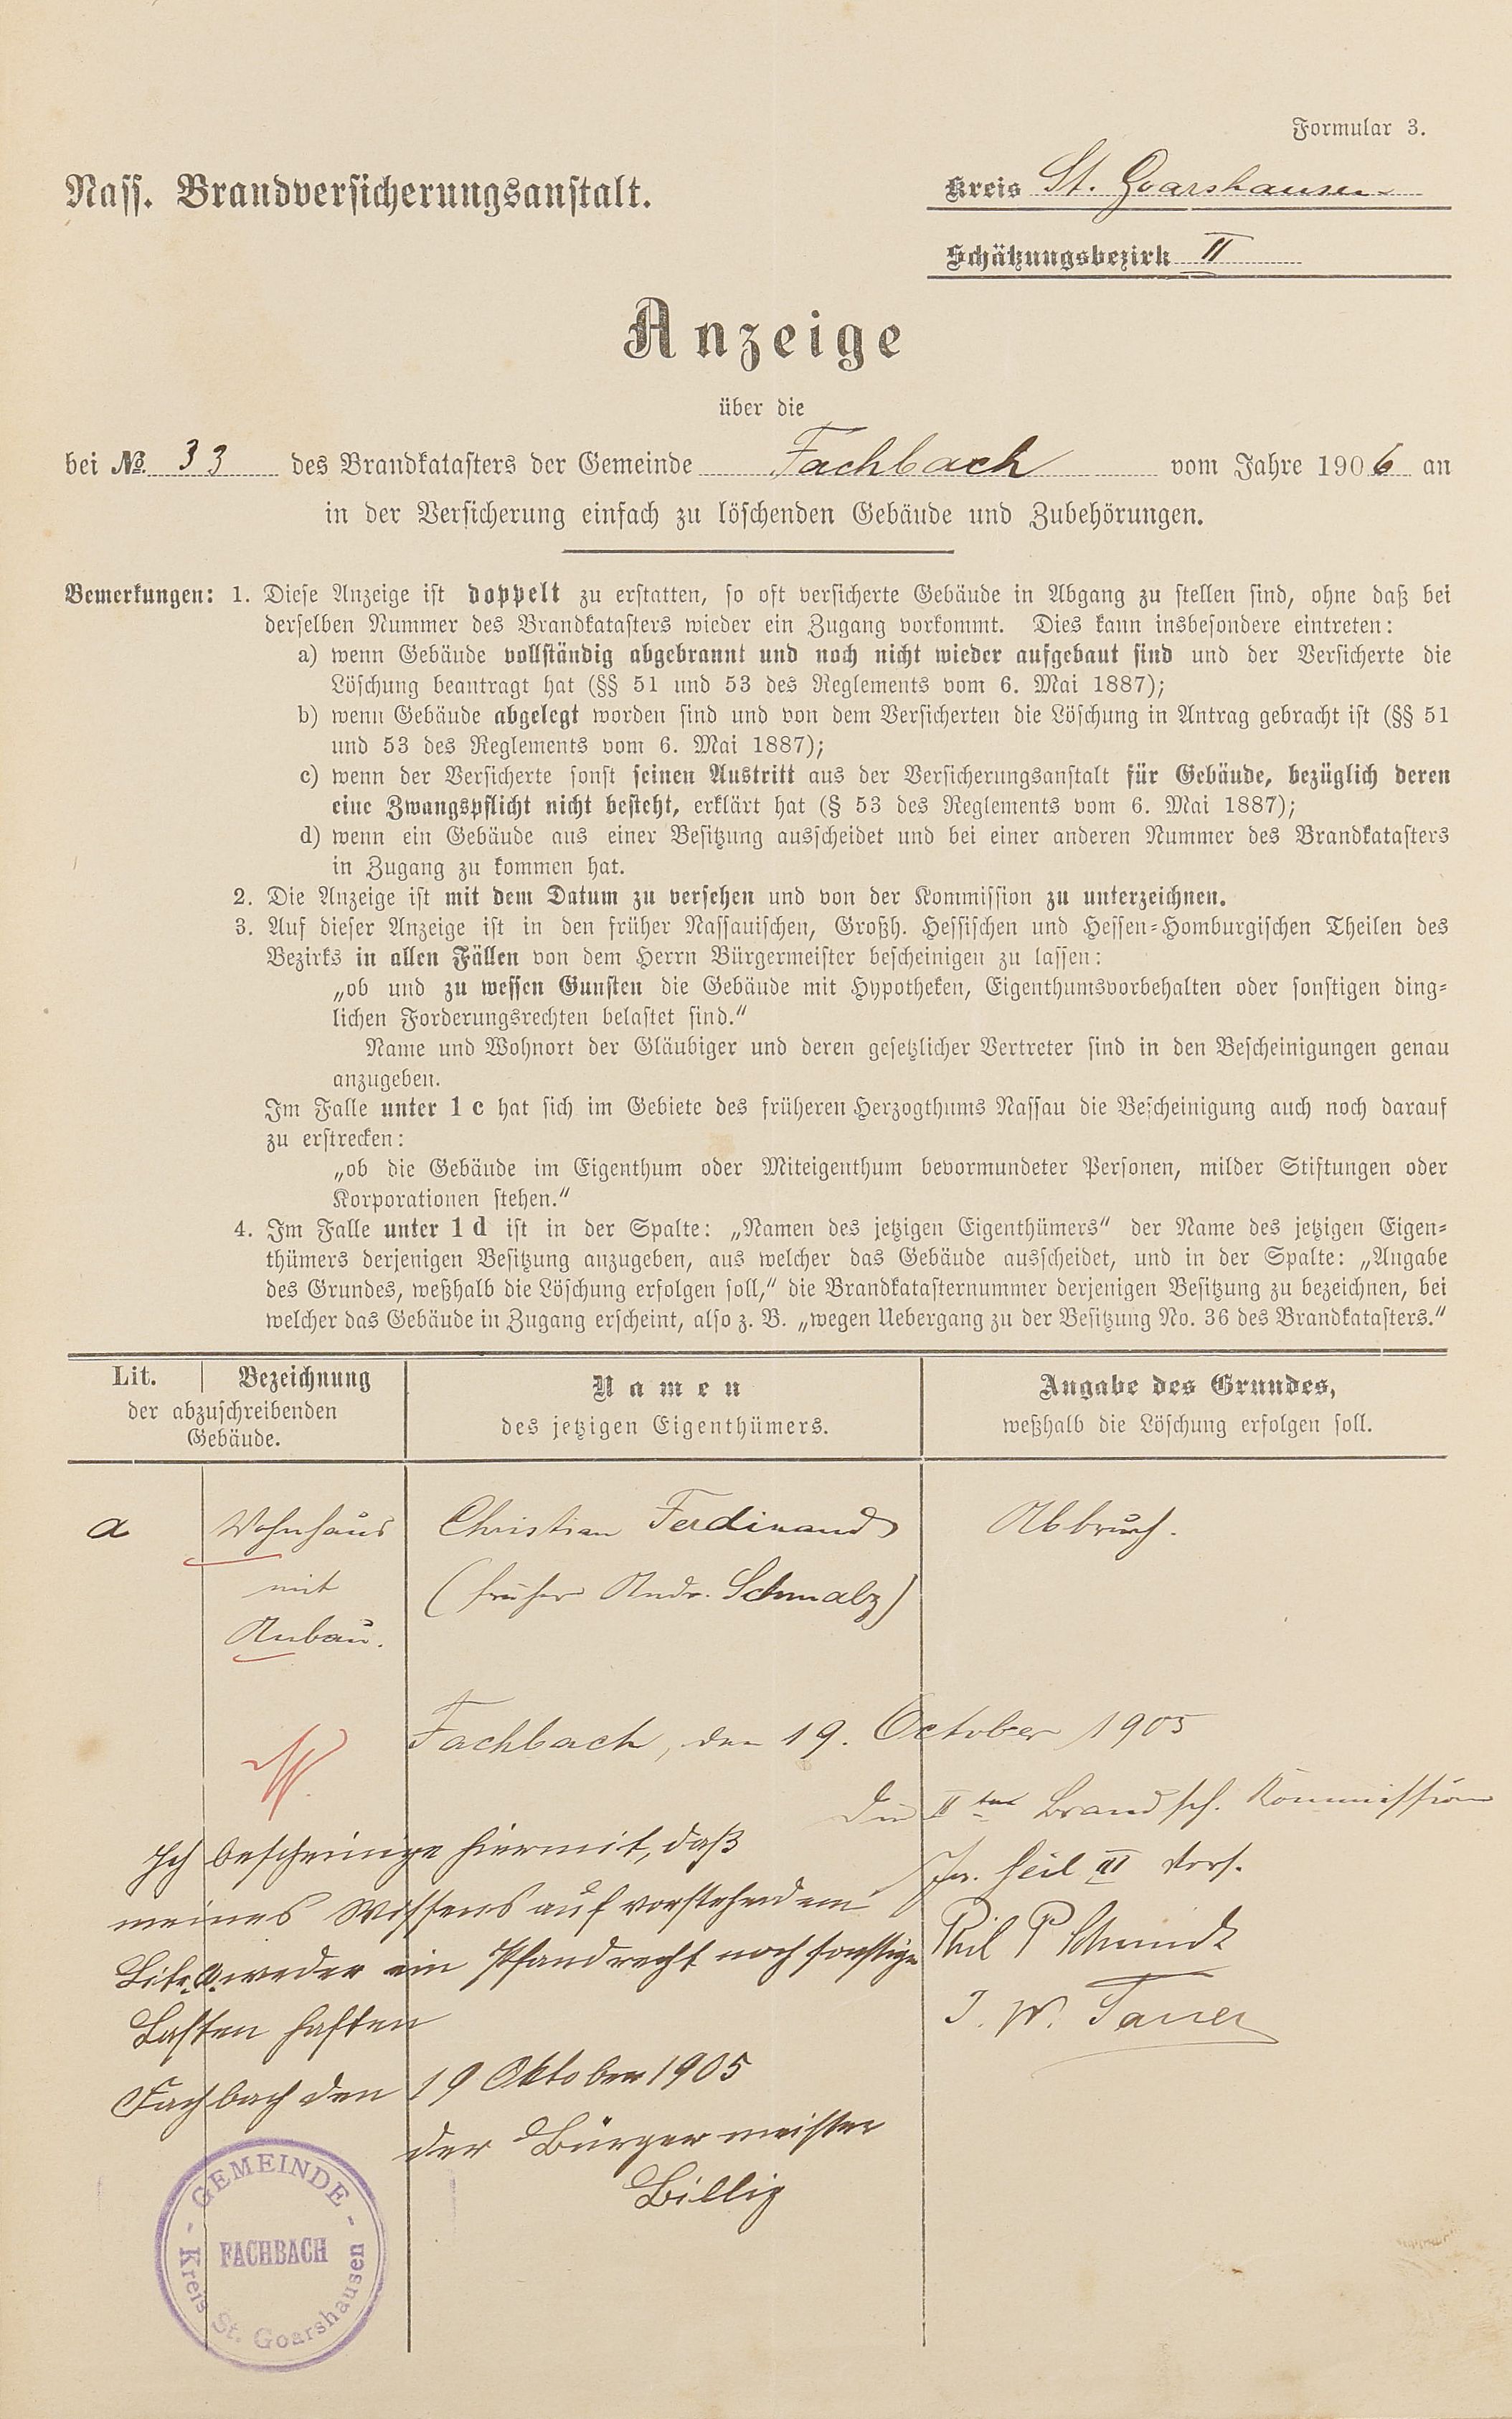 Formular 3.
Nass. Brandversicherungsanstalt.
Kreis St. Goarshausen
Schätzungsbezirk II
Anzeige
über die
bei No. 33 des Brandkatasters der Gemeinde Fachbach vom Jahre 1906 an
in der Versicherung einfach zu löschenden Gebäude und Zubehörungen.
Bemerkungen: 1. Diese Anzeige ist doppelt zu erstatten, so oft versicherte Gebäude in Abgang zu stellen sind, ohne daß bei
derselben Nummer des Brandkatasters wieder ein Zugang vorkommt. Dies kann insbesondere eintreten:
a) wenn Gebäude vollständig abgebrannt und noch nicht wieder aufgebaut sind und der Versicherte die
Löschung beantragt hat (§§ 51 und 53 des Reglements vom 6. Mai 1887);
b) wenn Gebäude abgelegt worden sind und von dem Versicherten die Löschung in Antrag gebracht ist (§§ 51
und 53 des Reglements vom 6. Mai 1887);
c) wenn der Versicherte sonst seinen Austritt aus der Versicherungsanstalt für Gebäude, bezüglich deren
eine Zwangspflicht nicht besteht, erklärt hat (§ 53 des Reglements vom 6. Mai 1887);
d) wenn ein Gebäude aus einer Besitzung ausscheidet und bei einer anderen Nummer des Brandkatasters
in Zugang zu kommen hat.
2. Die Anzeige ist mit dem Datum zu versehen und von der Kommission zu unterzeichnen.
3. Auf dieser Anzeige ist in den früher Nassauischen, Großh. Hessischen und Hessen-Homburgischen Theilen des
Bezirks in allen Fällen von dem Herrn Bürgermeister bescheinigen zu lassen:
„ob und zu wessen Gunsten die Gebäude mit Hypotheken, Eigenthumsvorbehalten oder sonstigen ding-
lichen Forderungsrechten belastet sind.“
Name und Wohnort der Gläubiger und deren gesetzlicher Vertreter sind in den Bescheinigungen genau
anzugeben.
Im Falle unter 1 c hat sich im Gebiete des früheren Herzogthums Nassau die Bescheinigung auch noch darauf
zu erstrecken:
„ob die Gebäude im Eigenthum oder Miteigenthum bevormundeter Personen, milder Stiftungen oder
Korporationen stehen.“
4. Im Falle unter 1 d ist in der Spalte: „Namen des jetzigen Eigenthümers“ der Name des jetzigen Eigen-
thümers derjenigen Besitzung anzugeben, aus welcher das Gebäude ausscheidet, und in der Spalte: „Angabe
des Grundes, weßhalb die Löschung erfolgen soll,“ die Brandkatasternummer derjenigen Besitzung zu bezeichnen, bei
welcher das Gebäude in Zugang erscheint, also z. B. „wegen Uebergang zu der Besitzung No. 36 des Brandkatasters.“
Lit. Bezeichnung
der abzuschreibenden
Gebäude.
Namen
des jetzigen Eigenthümers.
Angabe des Grundes,
weßhalb die Löschung erfolgen soll.
a Wohnhaus Christian Ferdinand Abbruch.
mit (früher Andr. Schmalz)
Anbau.
Fachbach, den 19. October 1905
Die II te Brandsch. Kommission
Heil III Vors.
Phil P Schmidt
J. W.
Ich bescheinige hiermit, daß
meines Wissens auf vorstehendem
Litr. a. weder ein Pfandrecht noch sonstige
Lasten haften
Fachbach den 19 Oktober 1905
der Bürgermeister
Billig
GEMEINDE
FACHBACH
Kreis St. Goarshausen